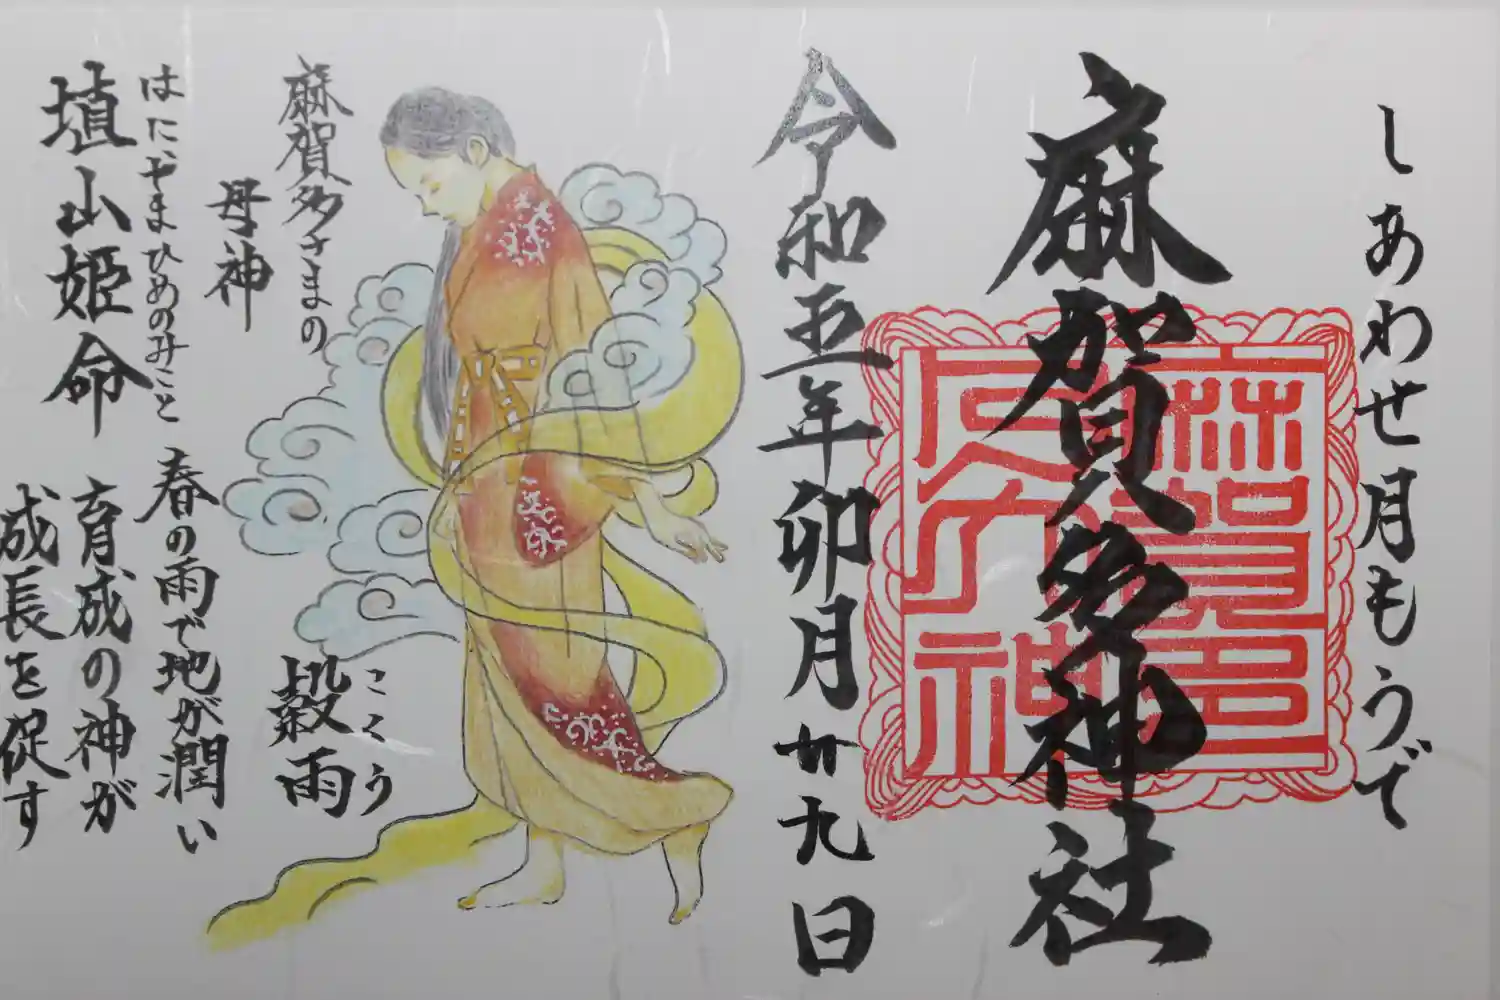 しあわせ月もうで
麻賀多神社
令和五年卯月廿九日
麻賀多さまの
母神
はにやまひめのみこと
埴山姫命
こくう
穀雨
春の雨で地が潤い
育成の神が
成長を促す